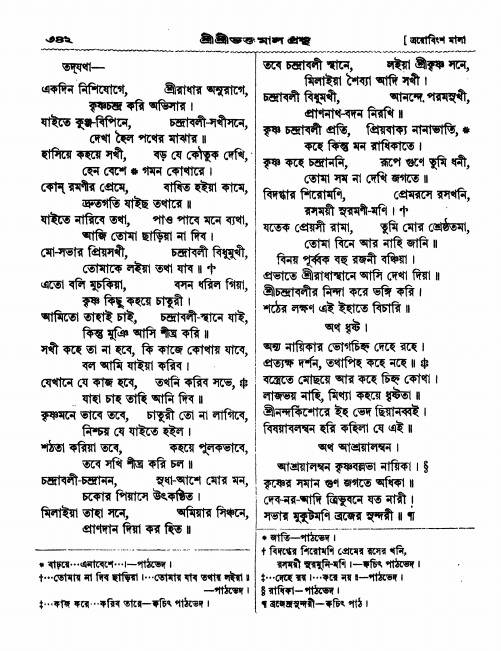 ৩৪২ শ্রীশ্রীভক্তমাল গ্রন্থ [ ত্রয়োবিংশ মালা
তদ্‌যথা—
একদিন নিশিযোগে, শ্রীরাধার অনুরাগে,
কৃষ্ণচন্দ্র করি অভিসার।
যাইতে কুঞ্জ-বিপিনে, চন্দ্রাবলী-সখীসনে,
দেখা হৈল পথের মাঝার॥
হাসিয়ে কহয়ে সখী, বড় যে কৌতুক দেখি,
হেন বেশে * গমন কোথারে।
কোন্ রমণীর প্রেমে, বাধিত হইয়া কামে,
দ্রুতগতি যাইছ তথারে॥
যাইতে নারিবে তথা, পাও পাবে মনে ব্যথা,
আজি তোমা ছাড়িয়া না দিব।
মো-সভার প্রিয়সখী, চন্দ্রাবলী বিধুমুখী,
তোমাকে লইয়া তথা যাব॥ †
এতো বলি মুচকিয়া, বসন ধরিল গিয়া,
কৃষ্ণ কিছু কহয়ে চাতুরী।
আমিতো তাহাই চাই, চন্দ্রাবলী-স্থানে যাই,
কিন্তু মুঞি আসি শীঘ্র করি॥
সখী কহে তা না হবে, কি কাজে কোথায় যাবে,
বল আমি যাইয়া করিব।
যেখানে যে কাজ হবে, তখনি করিব সভে, ‡
যাহা চাহ তাহি আনি দিব॥
কৃষ্ণমনে ভাবে তবে, চাতুরী তো না লাগিবে,
নিশ্চয় যে যাইতে হইল।
শঠতা করিয়া তবে, কহয়ে পুলকভাবে,
তবে সখি শীঘ্র করি চল॥
চন্দ্রাবলী-চন্দ্রানন, সুধা-আশে মোর মন,
চকোর পিয়াসে উৎকণ্ঠিত।
মিলাইয়া তাহা সনে, অমিয়ার সিঞ্চনে,
প্রাণদান দিয়া কর হিত॥
* বাঢ়য়ে···এনাবেশে···।—পাঠভেদ।
†···তোমায় না দিব ছাড়িয়া।···তোমায় যাব তথায় লইয়া॥
—পাঠভেদ।
‡···কাজ করে···করিব তারে—ক্বচিৎ পাঠভেদ।
তবে চন্দ্রাবলী স্থানে, লইয়া শ্রীকৃষ্ণ সনে,
মিলাইয়া শৈব্যা আদি সখী।
চন্দ্রাবলী বিধুমখী, আনন্দে পরমসুখী,
প্রাণনাথ-বদন নিরখি॥
কৃষ্ণ চন্দ্রাবলী প্রতি, প্রিয়বাক্য নানাভাতি, *
কহে কিন্তু মন রাধিকাতে।
কৃষ্ণ কহে চন্দ্রাননি, রূপে গুণে তুমি ধনী,
তোমা সম না দেখি জগতে॥
বিদগ্ধার শিরোমণি, প্রেমরসে রসখনি,
রসময়ী সুরমণী-মণি। †
যতেক প্রেয়সী রামা, তুমি মোর শ্রেষ্ঠতমা,
তোমা বিনে আর নাহি জানি॥
বিনয় পূর্ব্বক বহু রজনী বঞ্চিয়া।
প্রভাতে শ্রীরাধাস্থানে আসি দেখা দিয়া॥
শ্রীচন্দ্রাবলীর নিন্দা করে ভঙ্গি করি।
শঠের লক্ষণ এই ইহাতে বিচারি॥
অথ ধৃষ্ট।
অন্য নায়িকার ভোগচিহ্ন দেহে রহে।
প্রত্যক্ষ দর্শন, তথাপিহ কহে নহে॥ ‡
বস্ত্রেতে মোছয়ে আর কহে চিহ্ন কোথা।
লাজভয় নাহি, মিথ্যা কহয়ে ধৃষ্টতা॥
শ্রীনন্দকিশোরে ইহ ভেদ ছিয়ানব্বই।
বিষয়াবলম্বন হরি কহিলা যে এই॥
অথ আশ্রয়ালম্বন।
আশ্রয়ালম্বন কৃষ্ণবল্লভা নায়িকা। §
কৃষ্ণের সমান গুণ জগতে অধিকা॥
দেব-নর-আদি ত্রিভুবনে যত নারী।
সভার মুকুটমণি ব্রজের সুন্দরী॥ ¶
* জাতি—পাঠভেদ।
† বিদগ্ধের শিরোমণি প্রেমের রসের খনি,
রসময়ী সুরমুনি-মণি।—ক্বচিৎ পাঠভেদ।
‡···দেহে রয়।···করে নয়॥—পাঠভেদ।
§ রাধিকা—পাঠভেদ।
¶ ব্রজেন্দ্রসুন্দরী—ক্বচিৎ পাঠ।